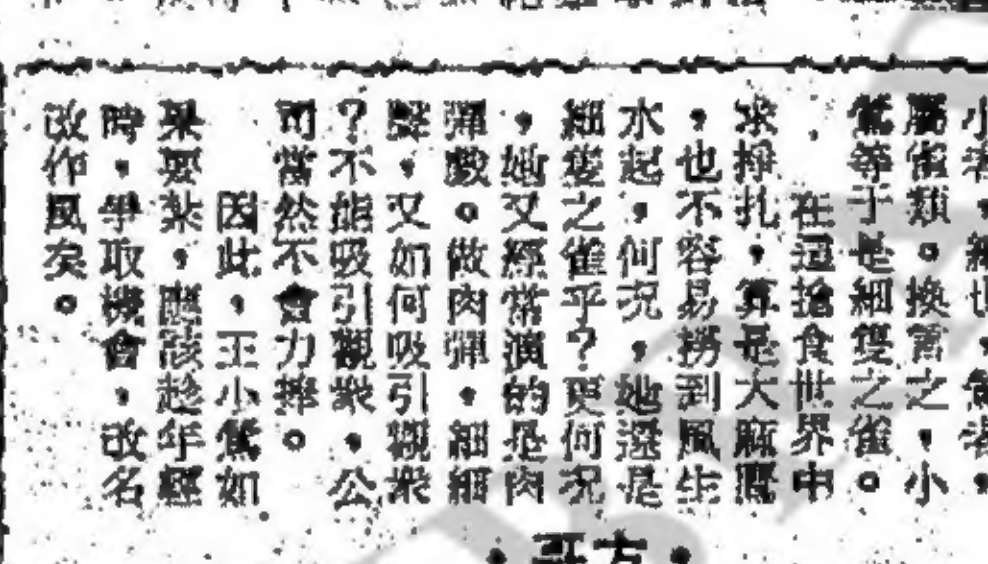 小者，細也，鶯者，
屬雀類。換言之，小
鶯等于是細隻之雀。
在這搶食世界中
求掙扎，算是大麻鷹
，也不容易撈到風生
水起，何況，她還是
細隻之雀乎？更何況
，她又經常演的是肉
彈戲。做肉彈，細細
，又如何吸引觀衆
？不能吸引觀衆，公
司當然不會力捧。
因此，王小鶯如
果要紮，應該趁年輕
時，爭取機會，改名
改作風矣。